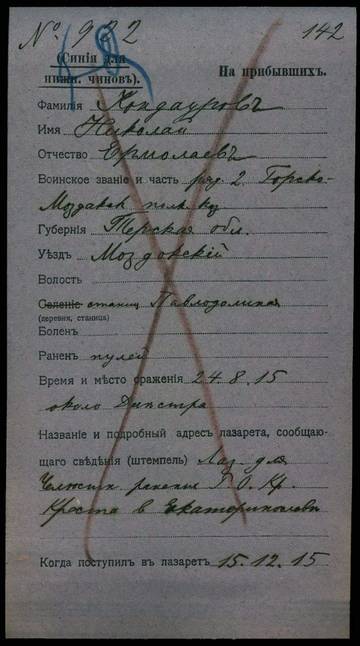 № 922 142
(Синія для
нижн. чиновъ).
На прибывшихъ.
Фамилія Кондауровъ
Имя Николай
Отчество Ермолаевъ
Воинское званіе и часть ряд 2 Горско-
Моздокск полк Каз
Губернія Терская обл.
Уѣздъ Моздовскій
Волость
Селеніе станиц Павлодольская
(деревня, станица)
Боленъ
Раненъ пулей
Время и мѣсто сраженія 24.8.15
около Днѣстра
Названіе и подробный адресъ лазарета, сообщаю-
щаго свѣдѣнія (штемпель) Лаз. для
раненыхъ Г. О. Кр.
Креста в Екатеринославѣ
Когда поступилъ въ лазаретъ 15.12.15